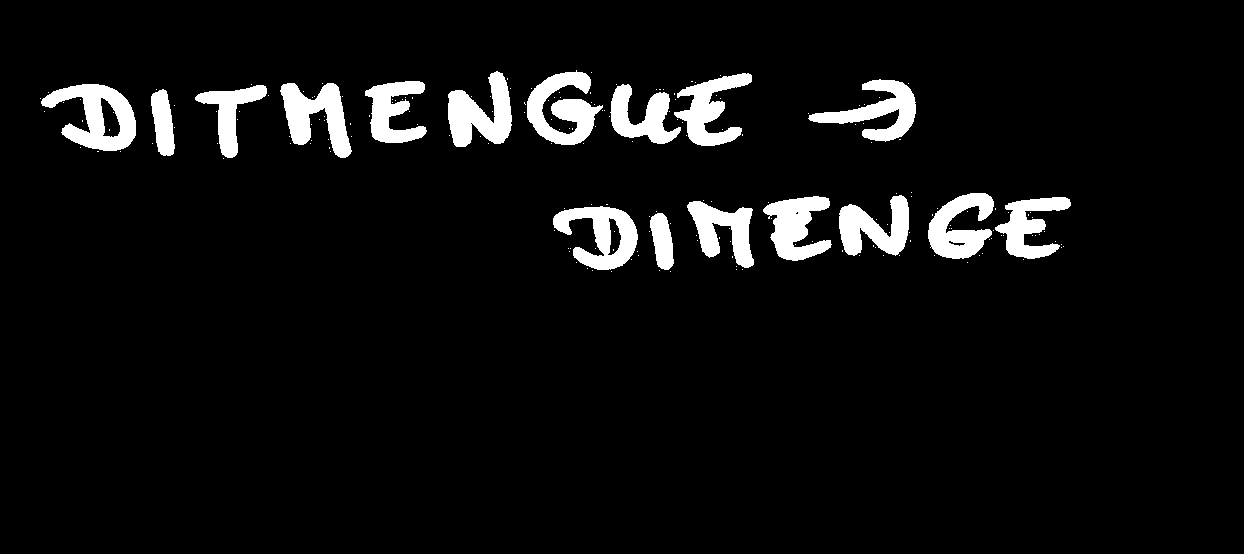 DITMENGUE →
DIMENGE